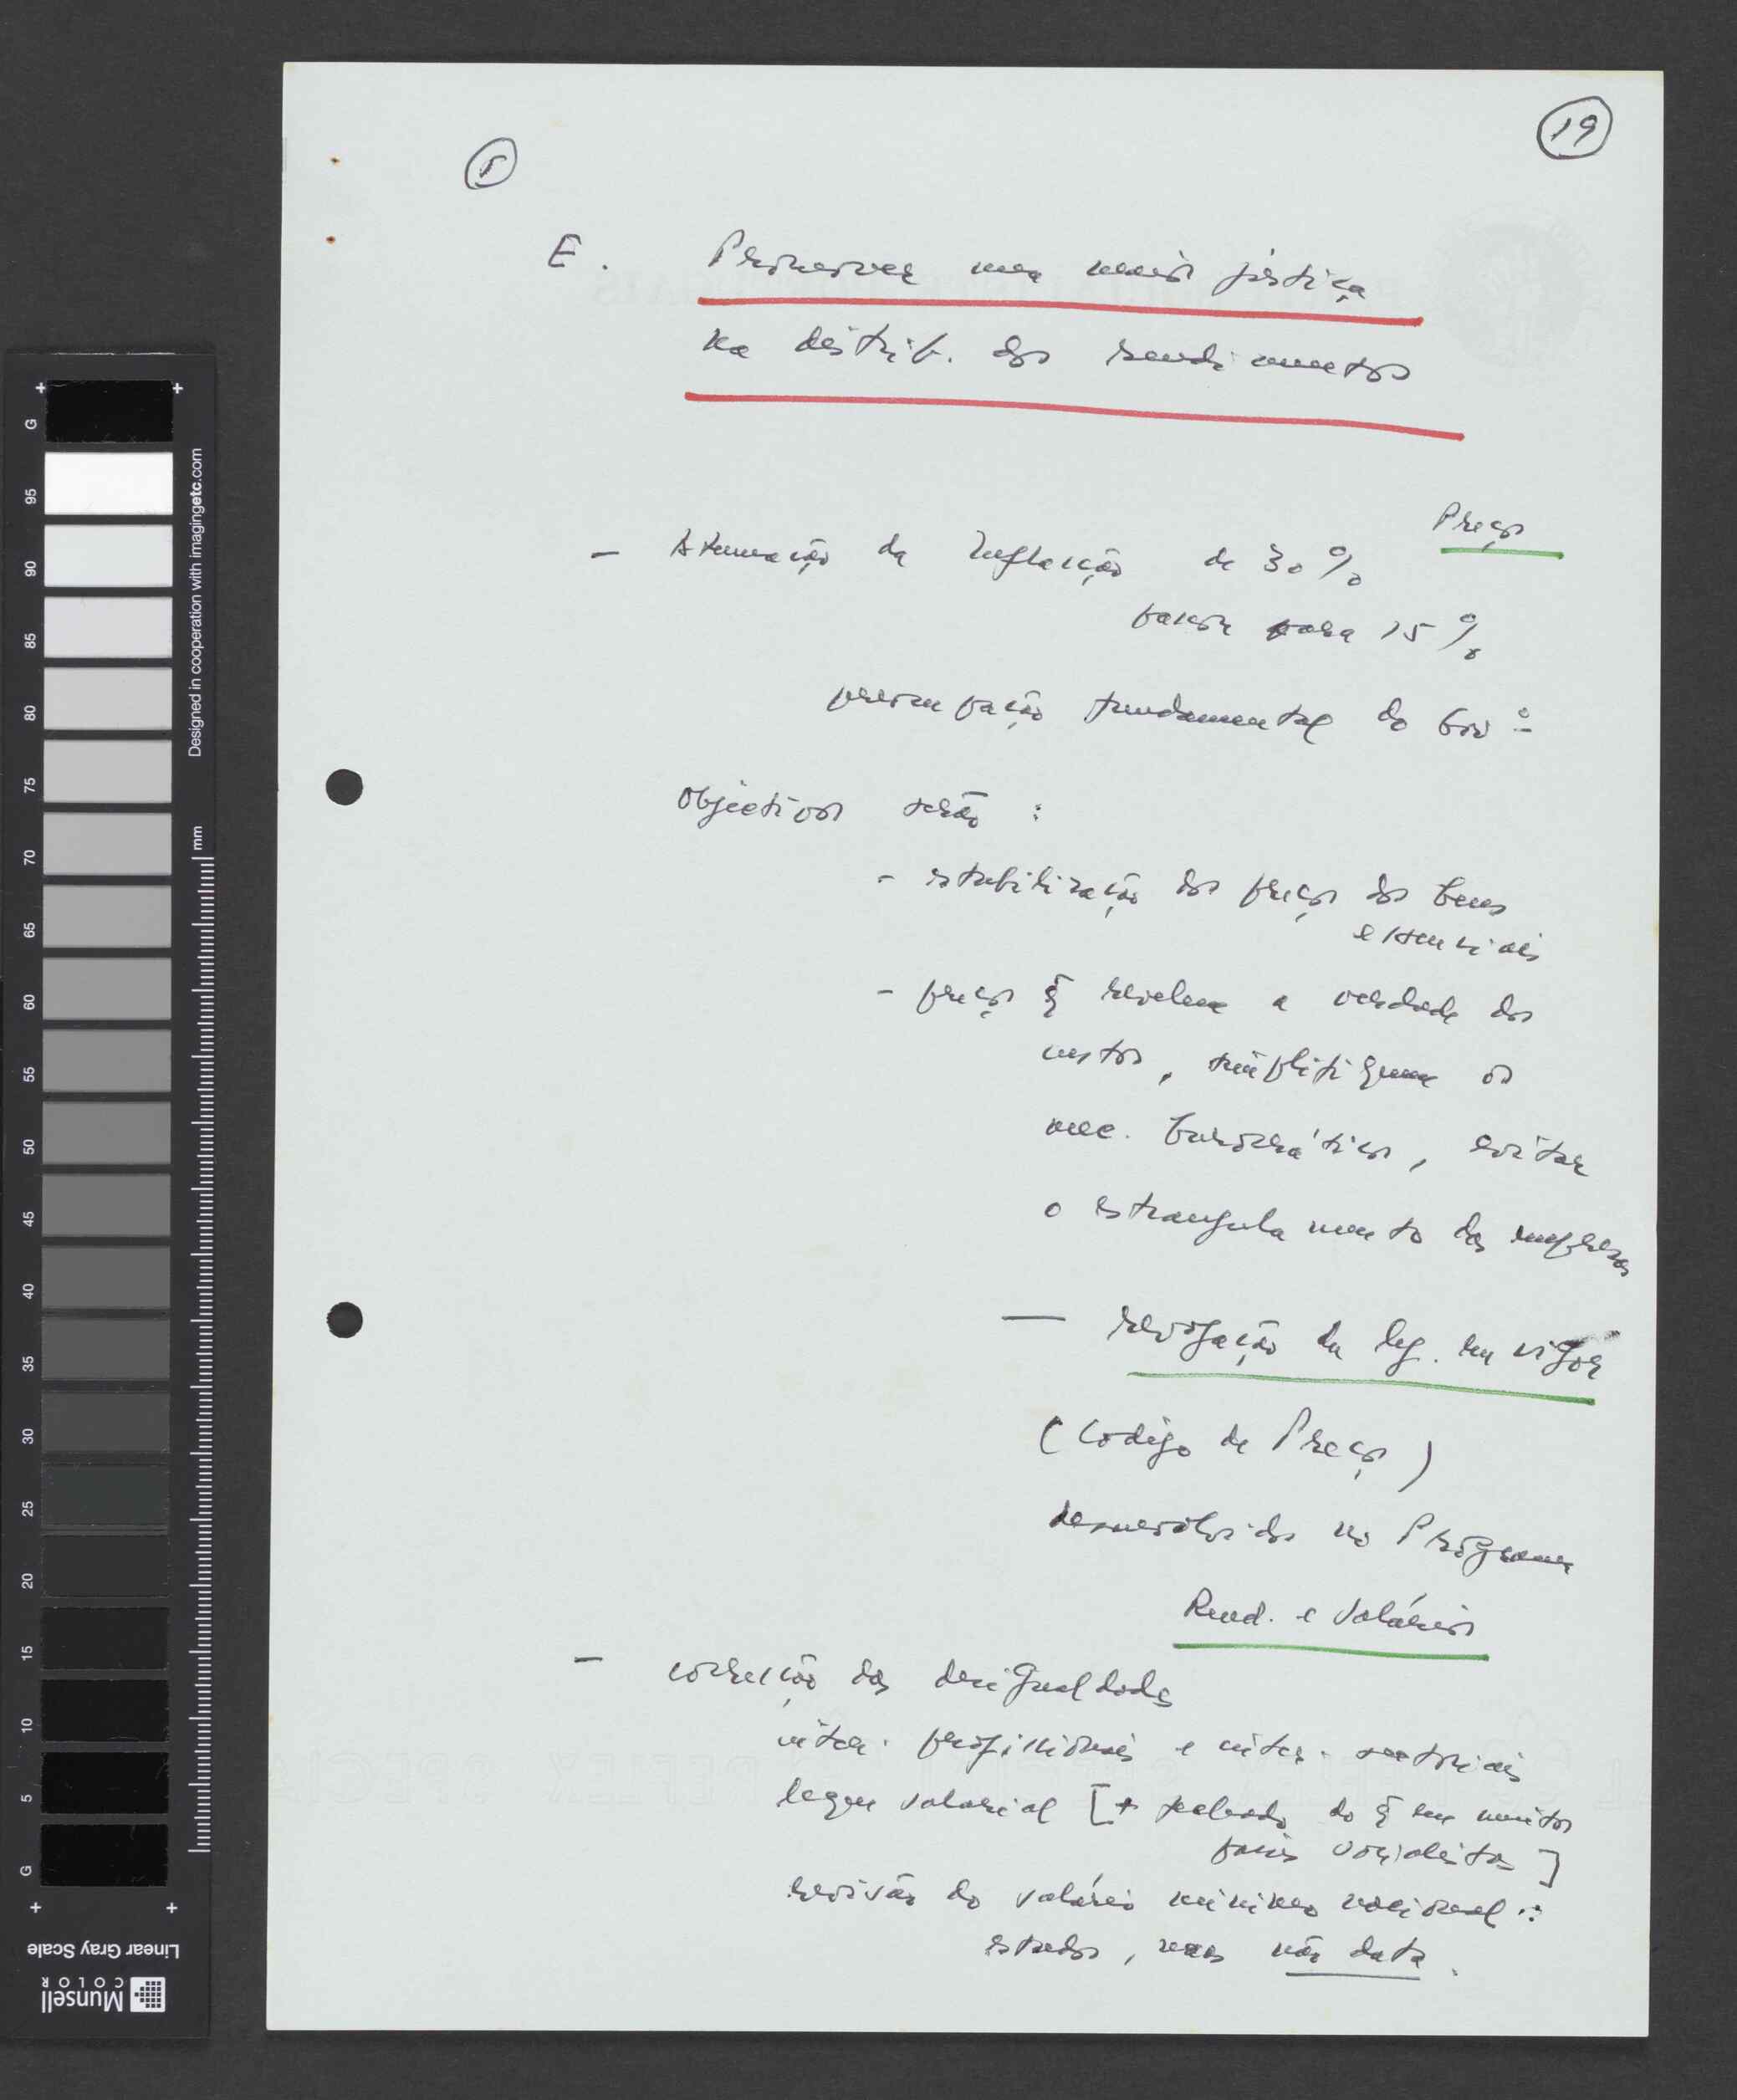 19
5
E. Promover uma maior justiça
na distrib. dos rendimentos
Preços
- Atenuação da Inflacção de 30%
passar para 15%
preocupação fundamental do Govº
Objectivos serão :
- estabilização dos preços dos bens
essenciais
- preços q̃ revelem a verdade dos
custos, simplifiquem os
mec. burocráticos, evitar
o estrangulamento das empresas
— revogação da leg. em vigor
(Código de Preços)
desenvolvidos no Programa
Rend. e Salários
- correcção das desigualdades
inter-profissionais e inter-sectoriais
leque salarial [+ do q̃ em muitos
países socialistas]
revisão do salário mínimo nacional :
estudos, mas não data.
G
95
90
85
80
75
70
65
60
55
50
45
40
35
30
25
20
15
10
5
G
Designed in cooperation with imagingetc.com
mm
Linear Gray Scale
Munsell
COLOR